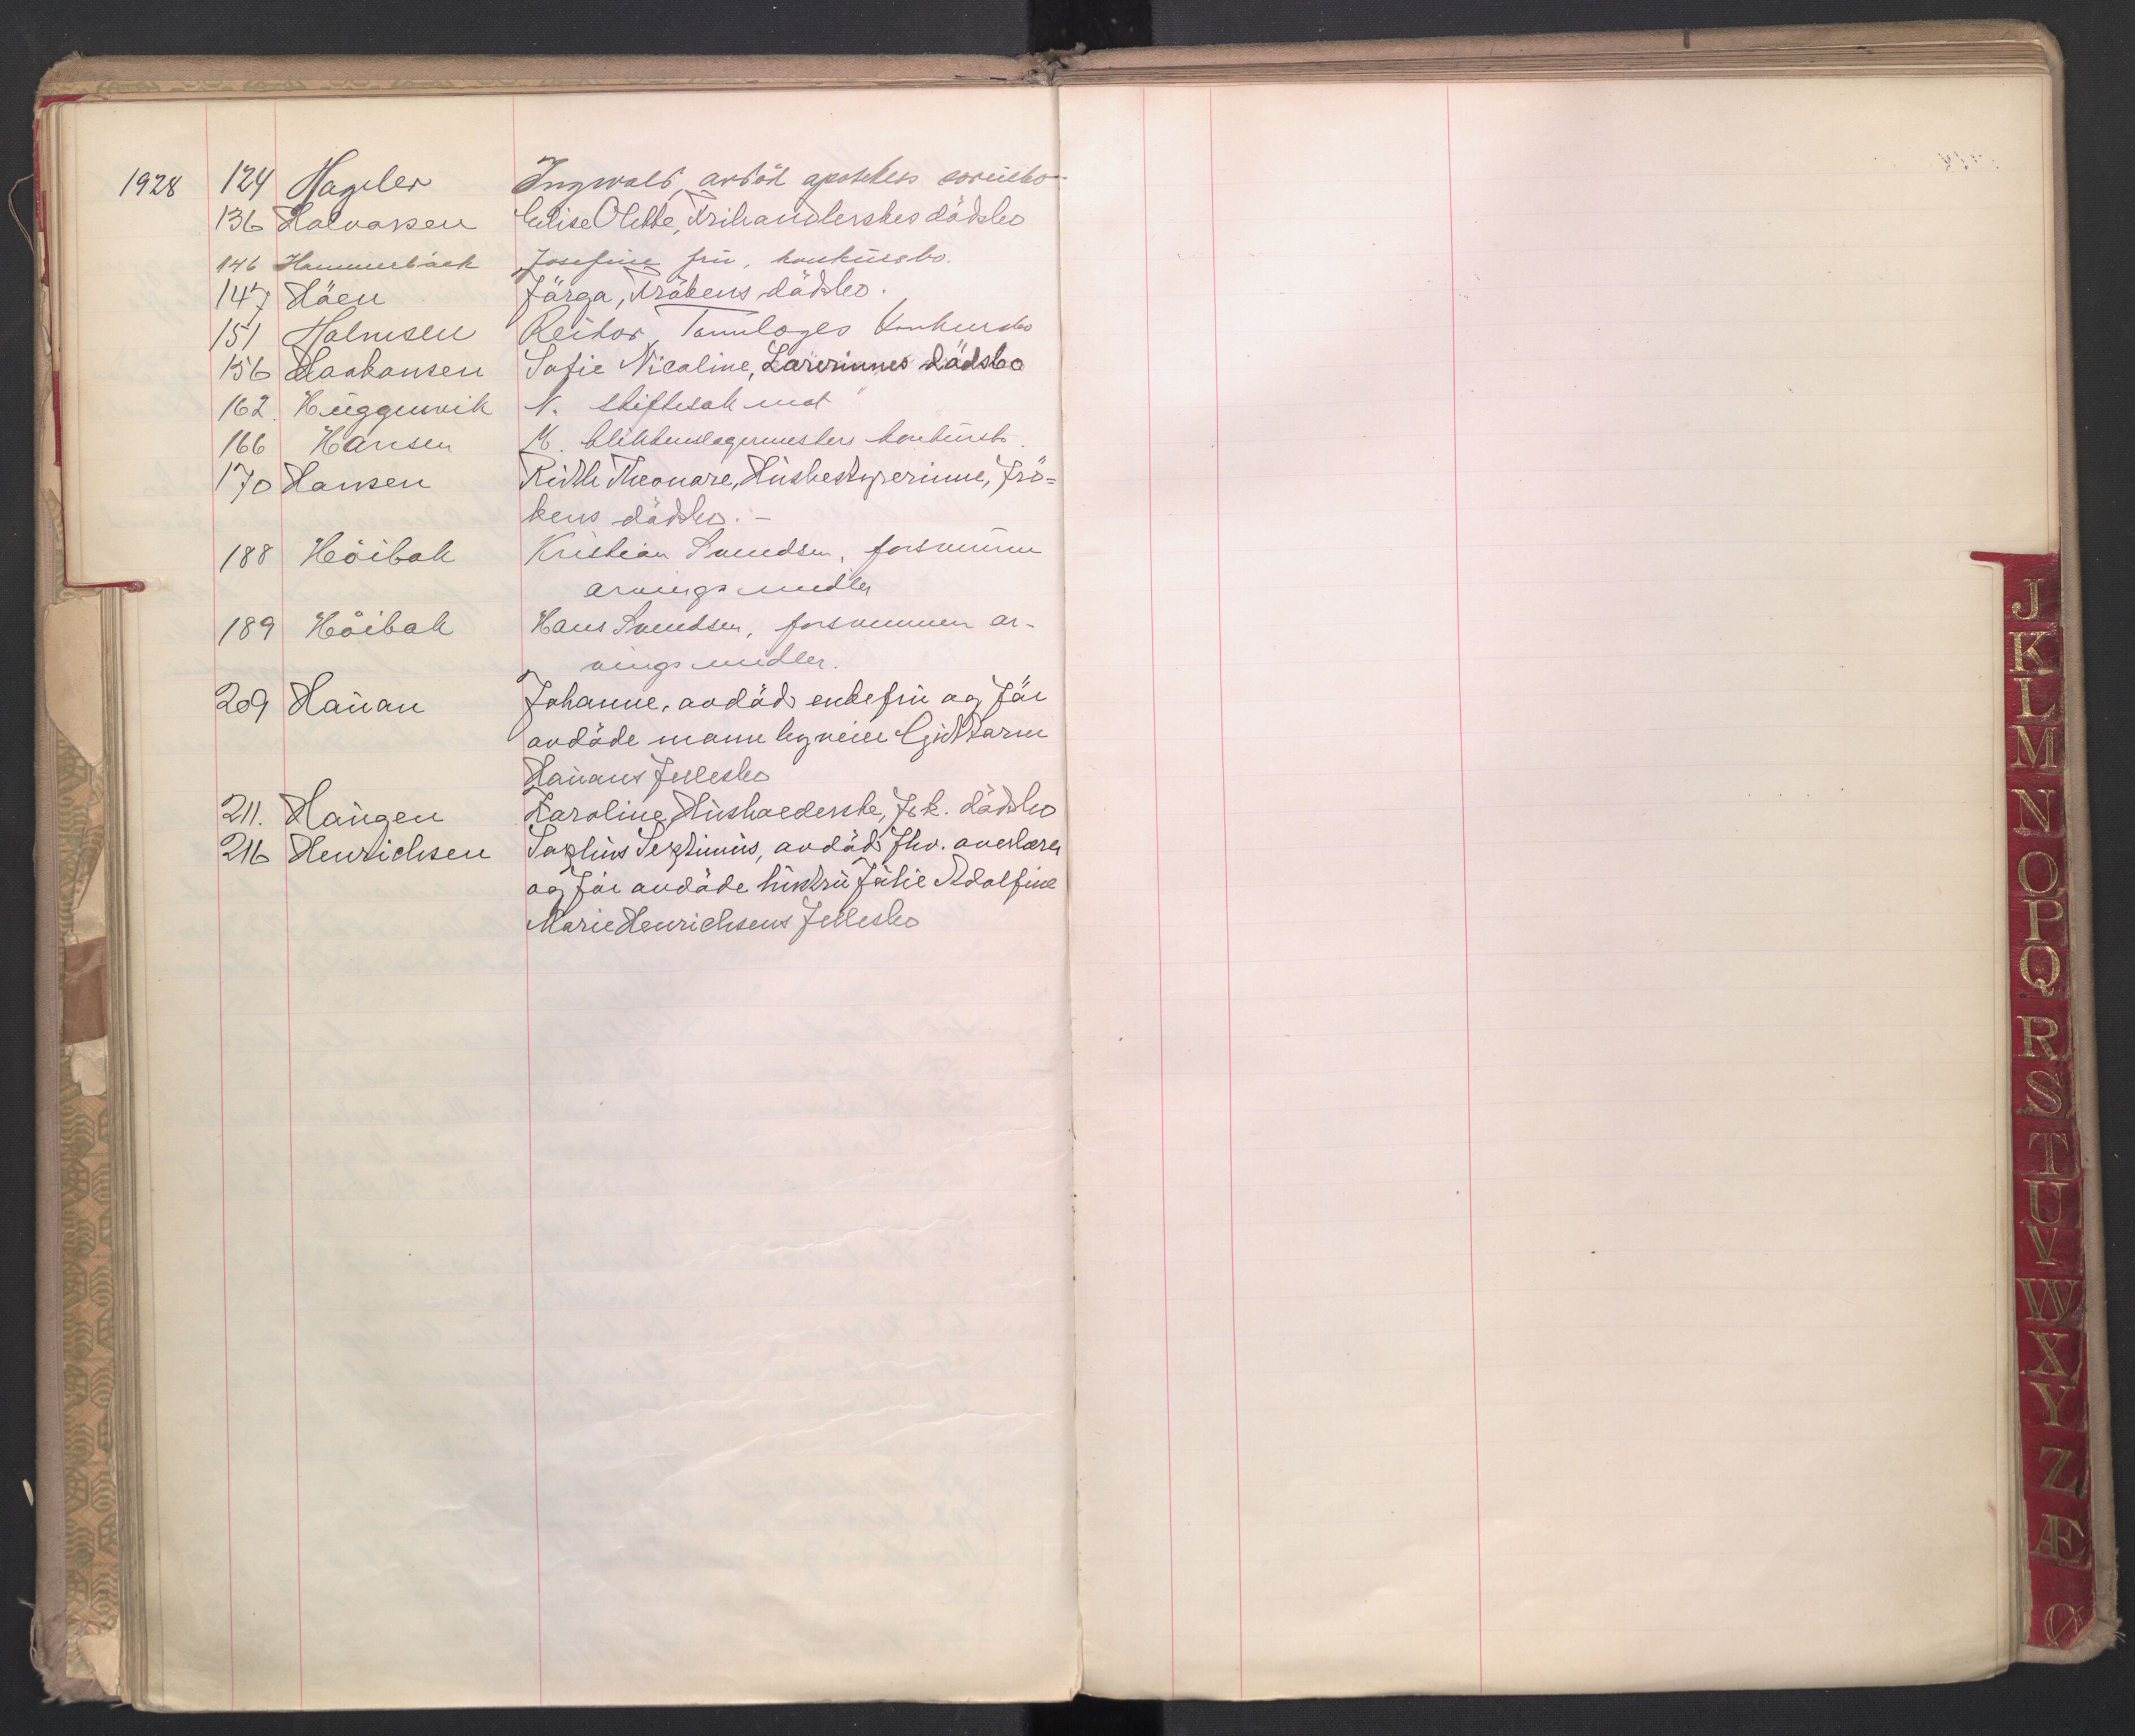 1928 124 Hageler Ingwald, avdöd apotekers
136 Halvorsen Elise Olette, Frihandlerskes dödsbo
146 Hammerbäck Josefine frü, konkürsbo.
147 Höen Frökens dödsbo.
151 Holmsen Reidar, Tannleges Konkursbo
156 Haakonsen Sofie Nicoline, Lærerinnes Dödsbo
162. Hüggenvik N. skiftesak mot
166 Hansen M. blikkenslagermesters konkürsbo.
170 Hansen Theonare, Hüsbestyrerinne, frö=
kens dödsbo. –
188 Höibak Kristian Svendsen, forsvunnen
arvings midler
189 Höibak Hans Svendsen, forsvunnen ar-
vings midler.
209 Haüan Johanne, avdöd enkefrü og för
avdöde mann
Haüans fellesbo
211. Haügen Karoline, Hüsholderske, frk. dödsbo
216 Henrichsen Septimüs, avdöd fhv. overlærer
og för avdöde hüstrü Adolfine
Marie Henrichsens fellesbo
J
K
L
M
N
O
P
Q
R
S
T
U
V
W
X
Y
Z
Æ
Ø